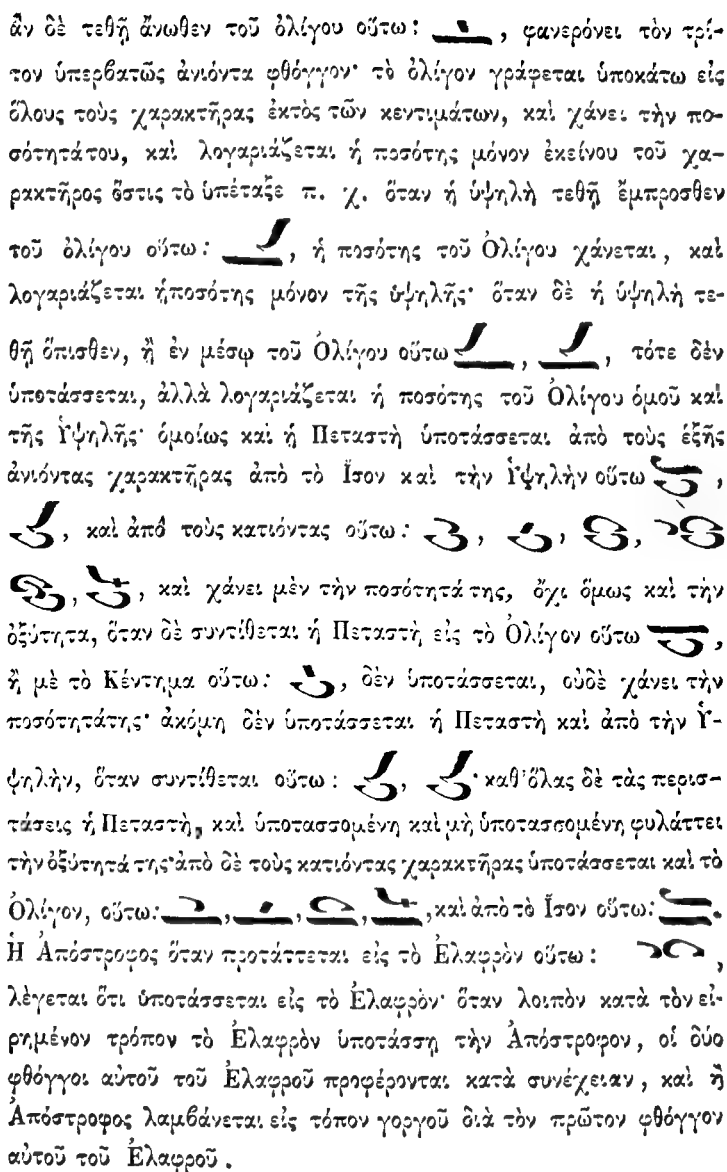 ἂν δὲ τεθῇ ἄνωθεν τοῦ ὀλίγου οὕτω: , φανερόνει τὸν τρί-
τον ὑπερβατῶς ἀνιόντα φθόγγον· τὸ ὀλίγον γράφεται ὑποκάτω εἰς
ὅλους τοὺς χαρακτῆρας ἐκτὸς τῶν κεντιμάτων, καὶ χάνει τὴν πο-
σότητάτου, καὶ λογαριάζεται ἡ ποσότης μόνον ἐκείνου τοῦ χα-
ρακτῆρος ὅστις τὸ ὑπέταξε π. χ. ὅταν ἡ ὑψηλὴ τεθῇ ἔμπροσθεν
τοῦ ὀλίγου οὕτω: , ἡ ποσότης τοῦ Ὀλίγου χάνεται, καὶ
λογαριάζεται ἡποσότης μόνον τῆς ὑψηλῆς· ὅταν δὲ ἡ ὑψηλὴ τε-
θῇ ὄπισθεν, ἢ ἐν μέσῳ τοῦ Ὀλίγου οὕτω , , τότε δὲν
ὑποτάσσεται, ἀλλὰ λογαριάζεται ἡ ποσότης τοῦ Ὀλίγου ὁμοῦ καὶ
τῆς Ὑψηλῆς· ὁμοίως καὶ ἡ Πεταστὴ ὑποτάσσεται ἀπὸ τοὺς ἑξῆς
ἀνιόντας χαρακτῆρας ἀπὸ τὸ Ἴσον καὶ τὴν Ὑψηλὴν οὕτω ,
, καὶ ἀπὸ τοὺς κατιόντας οὕτω: , , ,
, , καὶ χάνει μὲν τὴν ποσότητά της, ὄχι ὅμως καὶ τὴν
ὀξύτητα, ὅταν δὲ συντίθεται ἡ Πεταστὴ εἰς τὸ Ὀλίγον οὕτω ,
ἢ μὲ τὸ Κέντημα οὕτω: , δὲν ὑποτάσσεται, οὐδὲ χάνει τὴν
ποσότητάτης· ἀκόμη δὲν ὑποτάσσεται ἡ Πεταστὴ καὶ ἀπὸ τὴν Ὑ-
ψηλὴν, ὅταν συντίθεται οὕτω: , · καθ᾽ὅλας δὲ τὰς περισ-
τάσεις ἡ Πεταστὴ, καὶ ὑποτασσομένη καὶ μὴ ὑποτασσομένη φυλάττει
τὴν ὀξύτητά της·ἀπὸ δὲ τοὺς κατιόντας χαρακτῆρας ὑποτάσσεται καὶ τὸ
Ὀλίγον, οὕτω: , , , , καὶ ἀπὸ τὸ Ἴσον οὕτω: .
Ἡ Ἀπόστροφος ὅταν προτάττεται εἰς τὸ Ἐλαφρὸν οὕτω: ,
λέγεται ὅτι ὑποτάσσεται εἰς τὸ Ἐλαφρὸν· ὅταν λοιπὸν κατὰ τὸν εἰ-
ρημένον τρόπον τὸ Ἐλαφρὸν ὑποτάσσῃ τὴν Ἀπόστροφον, οἱ δύο
φθόγγοι αὐτοῦ τοῦ Ἐλαφροῦ προφέρονται κατὰ συνέχειαν, καὶ ἡ
Ἀπόστροφος λαμβάνεται εἰς τόπον γοργοῦ διὰ τὸν πρῶτον φθόγγον
αὐτοῦ τοῦ Ἐλαφροῦ.